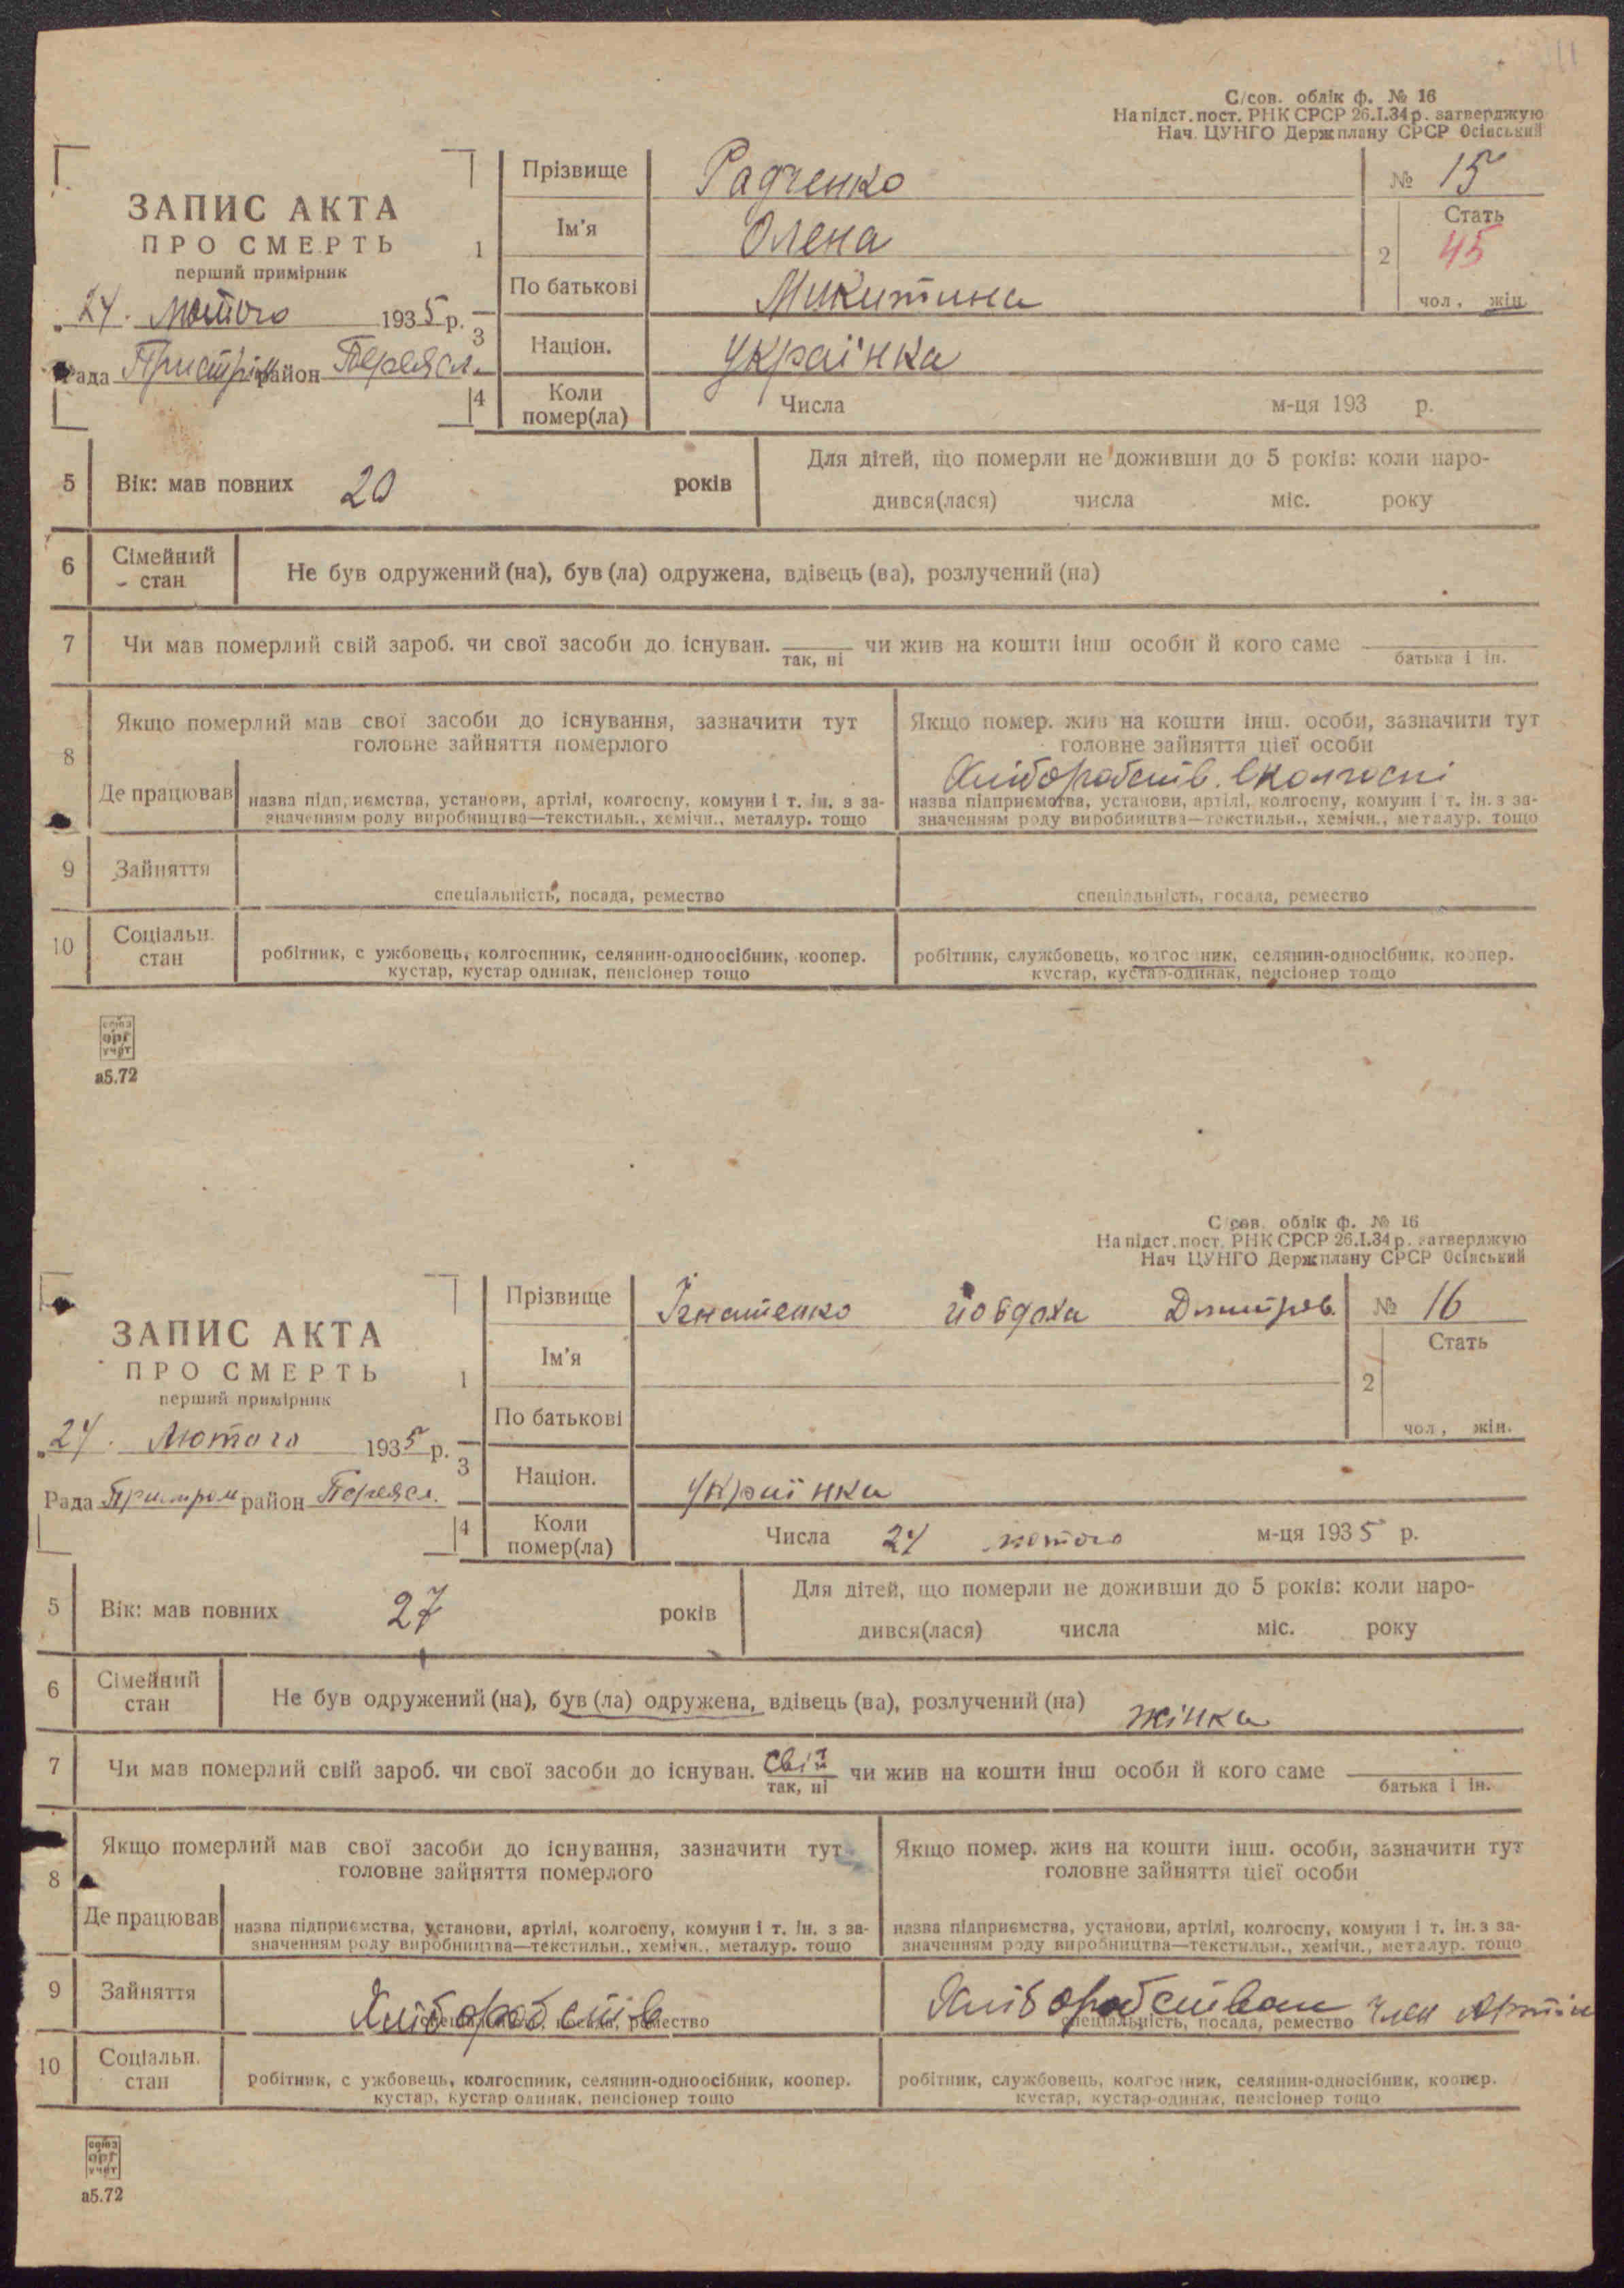 11
С/сов. облік ф. № 16
На підст. пост. РНК СРСР 26.I.34 р. затверджую
Нач. ЦУНГО Держплану СРСР Осінський
ЗАПИС АКТА
ПРО СМЕРТЬ
перший примірник
„24. Лютого 1935 р.
Рада Пристром район Переясл.
1 Прізвище Радченко № 15
Ім'я Олена
По батькові Микитина
2 Стать 45
чол, жін.
3 Націон. Українка
4 Коли помер(ла) Числа м-ця 193 р.
5 Вік: мав повних 20 років
Для дітей, що померли не доживши до 5 років: коли наро-
дився(лася) числа міс. року
6 Сімейний стан Не був одружений (на), був (ла) одружена, вдівець (ва), розлучений (на)
7 Чи мав померлий свій зароб. чи свої засоби до існуван. чи жив на кошти інш особи й кого саме
так, ні батька і ін.
8 Якщо померлий мав свої засоби до існування, зазначити тут
головне зайняття померлого
Якщо помер. жив на кошти інш. особи, зазначити тут
головне зайняття цієї особи
Хліборобств. в колгоспі
Де працював назва підприємства, установи, артілі, колгоспу, комуни і т. ін. з за-
значенням роду виробництва—текстильн., хемічн., металур. тощо
назва підприємства, установи, артілі, колгоспу, комуни і т. ін. з за-
значенням роду виробництва—текстильн., хемічн., металур. тощо
9 Зайняття
спеціальність, посада, ремество спеціальність, посада, ремество
10 Соціальн. стан
робітник, с ужбовець, колгоспник, селянин-одноосібник, коопер.
кустар, кустар одинак, пенсіонер тощо
робітник, службовець, колгос ник, селянин-односібник, коопер.
кустар, кустар-одинак, пенсіонер тощо
союз
орг
учет
а5.72
С/сов. облік ф. № 16
На підст. пост. РНК СРСР 26.I.34 р. затверджую
Нач ЦУНГО Держплану СРСР Осінський
ЗАПИС АКТА
ПРО СМЕРТЬ
перший примірник
„24. Лютого 1935 р.
Рада Пристром район Переясл.
1 Прізвище Ігнатенко Йовдоха Дмитров. № 16
Ім'я
По батькові
2 Стать
чол, жін.
3 Націон. Українка
4 Коли помер(ла) Числа 24 лютого м-ця 1935 р.
5 Вік: мав повних 27 років
Для дітей, що померли не доживши до 5 років: коли наро-
дився(лася) числа міс. року
6 Сімейний стан Не був одружений (на), був (ла) одружена, вдівець (ва), розлучений (на) жінка
7 Чи мав померлий свій зароб. чи свої засоби до існуван. свій чи жив на кошти інш особи й кого саме
так, ні батька і ін.
8 Якщо померлий мав свої засоби до існування, зазначити тут
головне зайняття померлого
Якщо помер. жив на кошти інш. особи, зазначити тут
головне зайняття цієї особи
Де працював назва підприємства, установи, артілі, колгоспу, комуни і т. ін. з за-
значенням роду виробництва—текстильн., хемічн., металур. тощо
назва підприємства, установи, артілі, колгоспу, комуни і т. ін. з за-
значенням роду виробництва—текстильн., хемічн., металур. тощо
9 Зайняття Хліборобств Хліборобством член Артіл
спеціальність, посада, ремество спеціальність, посада, ремество
10 Соціальн. стан
робітник, с ужбовець, колгоспник, селянин-одноосібник, коопер.
кустар, кустар одинак, пенсіонер тощо
робітник, службовець, колгос ник, селянин-односібник, коопер.
кустар, кустар-одинак, пенсіонер тощо
союз
орг
учет
а5.72